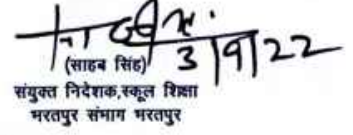 3/9/22
(साहब सिंह)
संयुक्त निदेशक,स्कूल शिक्षा
भरतपुर संभाग भरतपुर